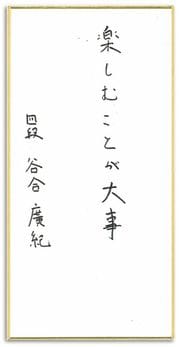 楽しむことが大事
四段 谷合廣紀